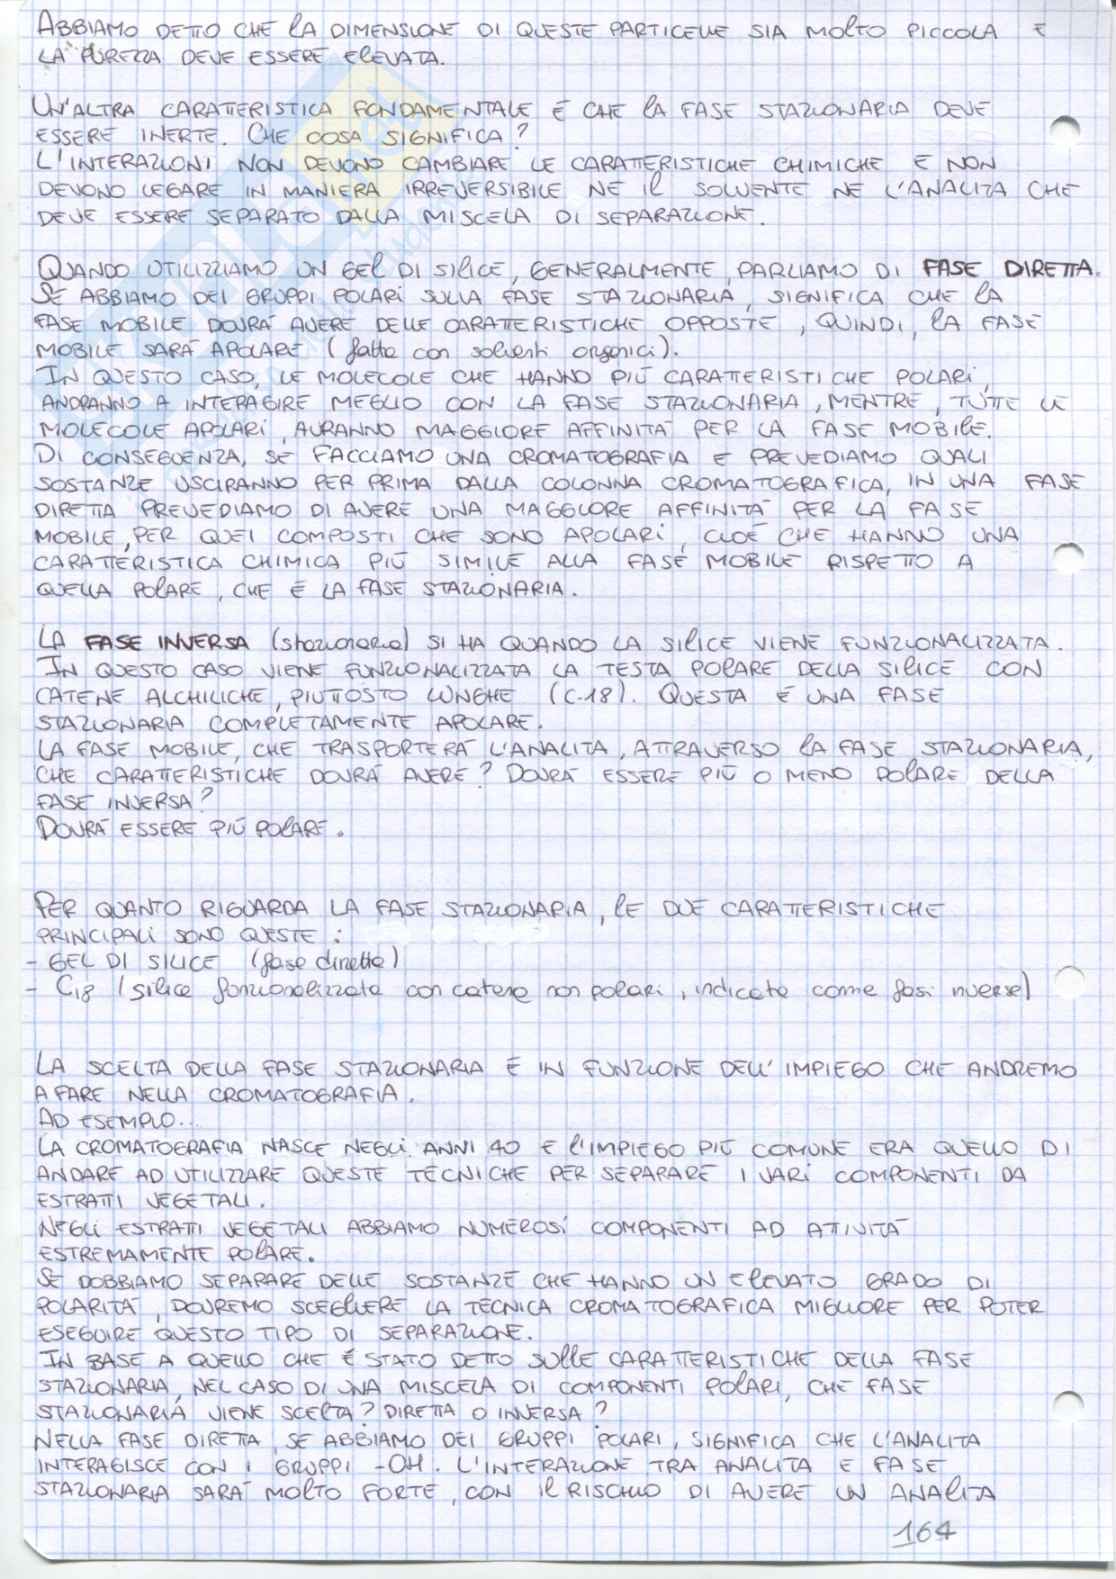 ABBIAMO DETTO CHE LA DIMENSIONE DI QUESTE PARTICELLE SIA MOLTO PICCOLA E
LA PUREZZA DEVE ESSERE ELEVATA.
UN'ALTRA CARATTERISTICA FONDAMENTALE È CHE LA FASE STAZIONARIA DEVE
ESSERE INERTE. CHE COSA SIGNIFICA?
L'INTERAZIONI NON DEVONO CAMBIARE LE CARATTERISTICHE CHIMICHE E NON
DEVONO LEGARE IN MANIERA IRREVERSIBILE NÈ IL SOLVENTE NÈ L'ANALITA CHE
DEVE ESSERE SEPARATO DALLA MISCELA DI SEPARAZIONE.
QUANDO UTILIZZIAMO UN GEL DI SILICE, GENERALMENTE, PARLIAMO DI FASE DIRETTA.
SE ABBIAMO DEI GRUPPI POLARI SULLA FASE STAZIONARIA, SIGNIFICA CHE LA
FASE MOBILE DOVRÀ AVERE DELLE CARATTERISTICHE OPPOSTE, QUINDI, LA FASE
MOBILE SARÀ APOLARE (fatta con solventi organici).
IN QUESTO CASO, LE MOLECOLE CHE HANNO PIÙ CARATTERISTICHE POLARI,
ANDRANNO A INTERAGIRE MEGLIO CON LA FASE STAZIONARIA, MENTRE, TUTTE LE
MOLECOLE APOLARI, AVRANNO MAGGIORE AFFINITÀ PER LA FASE MOBILE.
DI CONSEGUENZA, SE FACCIAMO UNA CROMATOGRAFIA E PREVEDIAMO QUALI
SOSTANZE USCIRANNO PER PRIMA DALLA COLONNA CROMATOGRAFICA, IN UNA FASE
DIRETTA PREVEDIAMO DI AVERE UNA MAGGIORE AFFINITÀ PER LA FASE
MOBILE, PER QUEI COMPOSTI CHE SONO APOLARI, CIOÈ CHE HANNO UNA
CARATTERISTICA CHIMICA PIÙ SIMILE ALLA FASE MOBILE RISPETTO A
QUELLA POLARE, CHE È LA FASE STAZIONARIA.
LA FASE INVERSA (stazionaria) SI HA QUANDO LA SILICE VIENE FUNZIONALIZZATA.
IN QUESTO CASO VIENE FUNZIONALIZZATA LA TESTA POLARE DELLA SILICE CON
CATENE ALCHILICHE, PIUTTOSTO LUNGHE (C-18). QUESTA È UNA FASE
STAZIONARIA COMPLETAMENTE APOLARE.
LA FASE MOBILE, CHE TRASPORTERÀ L'ANALITA, ATTRAVERSO LA FASE STAZIONARIA,
CHE CARATTERISTICHE DOVRÀ AVERE? DOVRÀ ESSERE PIÙ O MENO POLARE DELLA
FASE INVERSA?
DOVRÀ ESSERE PIÙ POLARE.
PER QUANTO RIGUARDA LA FASE STAZIONARIA, LE DUE CARATTERISTICHE
PRINCIPALI SONO QUESTE:
- GEL DI SILICE (fase diretta)
- C18 (silice funzionalizzata con catene non polari, indicate come fasi inverse)
LA SCELTA DELLA FASE STAZIONARIA È IN FUNZIONE DELL'IMPIEGO CHE ANDREMO
A FARE NELLA CROMATOGRAFIA.
AD ESEMPIO...
LA CROMATOGRAFIA NASCE NEGLI ANNI 40 E L'IMPIEGO PIÙ COMUNE ERA QUELLO DI
ANDARE AD UTILIZZARE QUESTE TECNICHE PER SEPARARE I VARI COMPONENTI DA
ESTRATTI VEGETALI.
NEGLI ESTRATTI VEGETALI ABBIAMO NUMEROSI COMPONENTI AD ATTIVITÀ
ESTREMAMENTE POLARE.
SE DOBBIAMO SEPARARE DELLE SOSTANZE CHE HANNO UN ELEVATO GRADO DI
POLARITÀ, DOVREMO SCEGLIERE LA TECNICA CROMATOGRAFICA MIGLIORE PER POTER
ESEGUIRE QUESTO TIPO DI SEPARAZIONE.
IN BASE A QUELLO CHE È STATO DETTO SULLE CARATTERISTICHE DELLA FASE
STAZIONARIA, NEL CASO DI UNA MISCELA DI COMPONENTI POLARI, CHE FASE
STAZIONARIA VIENE SCELTA? DIRETTA O INVERSA?
NELLA FASE DIRETTA, SE ABBIAMO DEI GRUPPI POLARI, SIGNIFICA CHE L'ANALITA
INTERAGISCE CON I GRUPPI -OH. L'INTERAZIONE TRA ANALITA E FASE
STAZIONARIA SARÀ MOLTO FORTE, CON IL RISCHIO DI AVERE UN ANALITA
164